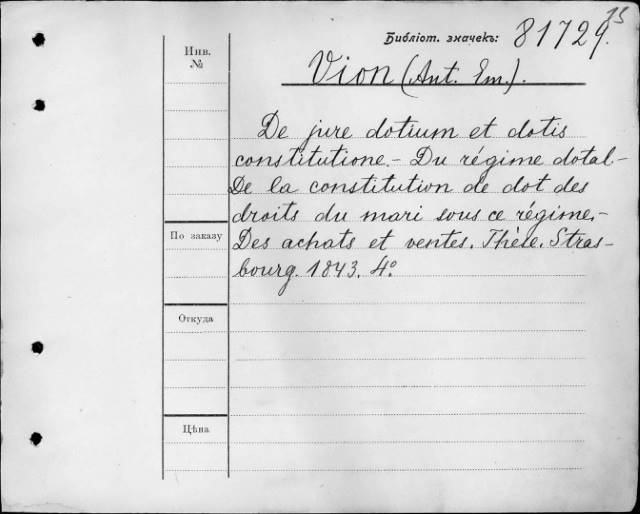 15
Библіот. значекъ: 81729.
Инв.
№
Vion (Ant. Em.).
De jure dotium et dotis
constitutione.- Du régime dotal-
De la constitution de dot des
droits du mari sous ce régime.-
По заказу
Des achats et ventes. Thèse. Stras-
bourg. 1843. 4º.
Откуда
Цѣна